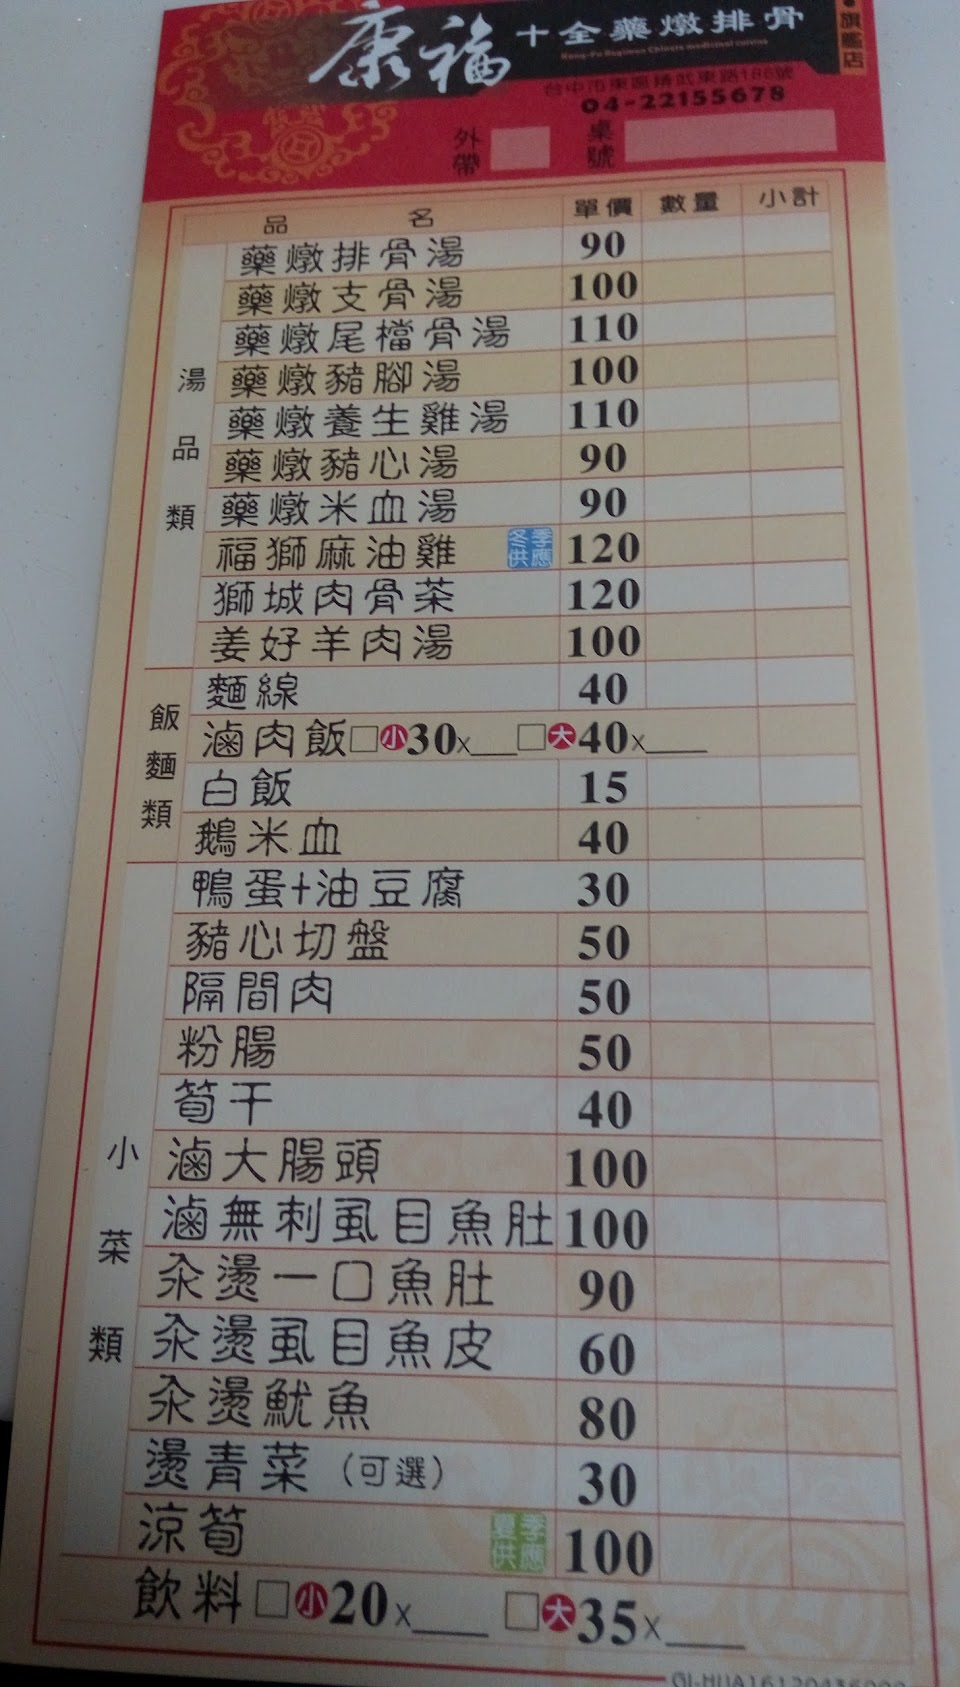 康福 十全藥燉排骨 旗艦店
台中市東區精武東路186號
04-22155678
外帶 桌號
品名 單價 數量 小計
湯品類
藥燉排骨湯 90
藥燉支骨湯 100
藥燉尾檔骨湯 110
藥燉豬腳湯 100
藥燉養生雞湯 110
藥燉豬心湯 90
藥燉米血湯 90
福獅麻油雞 冬季供應 120
獅城肉骨茶 120
姜好羊肉湯 100
飯麵類
麵線 40
滷肉飯□小30x___□大40x___
白飯 15
鵝米血 40
小菜類
鴨蛋+油豆腐 30
豬心切盤 50
隔間肉 50
粉腸 50
筍干 40
滷大腸頭 100
滷無刺虱目魚肚 100
汆燙一口魚肚 90
汆燙虱目魚皮 60
汆燙魷魚 80
燙青菜（可選） 30
涼筍 夏季供應 100
飲料□小20x___ □大35x___